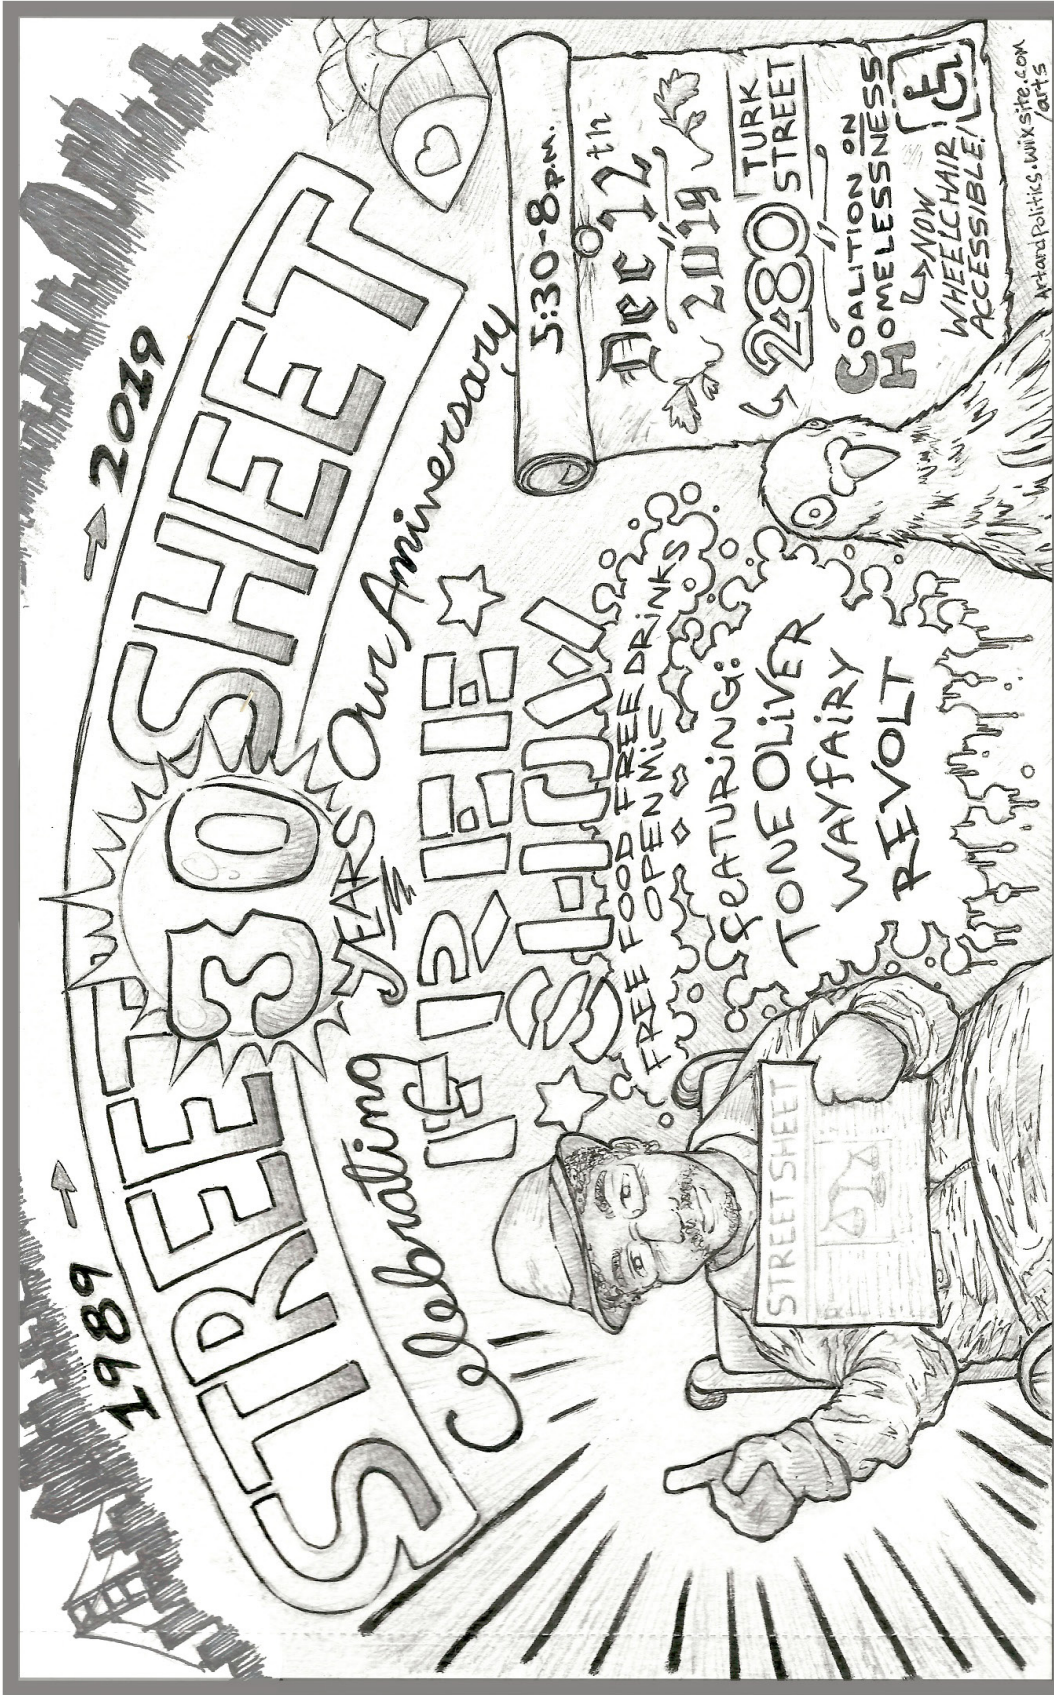 1989 → → 2019
STREET 30 SHEET
Celebrating YEARS Our Anniversary
FREE
SHOW
FREE FOOD FREE DRINKS
OPEN MIC
FEATURING:
TONE OLIVER
WAYFAIRY
REVOLT
STREET SHEET
5:30-8 p.m.
Dec 12th
2019
280 TURK
STREET
COALITION ON
HOMELESSNESS
NOW
WHEELCHAIR
ACCESSIBLE!
ArtandPolitics.wixsite.com
/arts